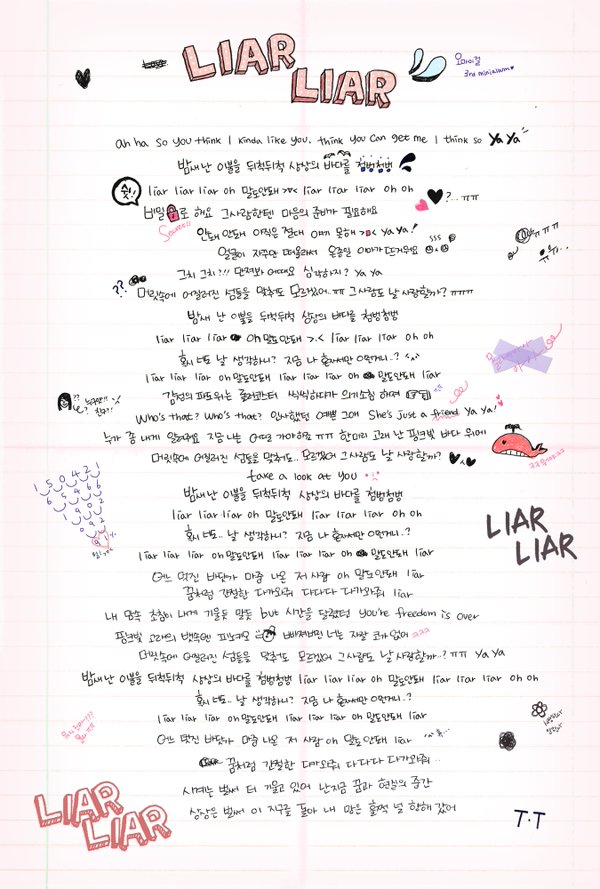 LIAR
LIAR
오마이걸
3rd mini album
ah ha so you think I kinda like you, think you can get me I think so Ya Ya
밤새 난 이불을 뒤척뒤척 상상의 바다를 첨벙첨벙
쉿!!
liar liar liar oh 말도안돼 >.< liar liar liar oh oh
?... ㅠㅠ
비밀로 해요 그사람한텐 마음의 준비가 필요해요
Secret!!
안돼 안돼 아직은 절대 얘기 못해 >.< ya ya!
얼굴이 자꾸만 떠올라서 온종일 이마가 뜨거워요
그치 그치?!! 딴청봐 어때요 심각하지? Ya Ya
??
머릿속에 어질러진 섬들을 맞춰도 모르겠어.. ㅠㅠ 그사람도 날 사랑할까? ㅠㅠㅠ
밤새 난 이불을 뒤척뒤척 상상의 바다를 첨벙첨벙
liar liar liar oh 말도안돼 >.< liar liar liar oh oh
혹시 너도 날 생각하니? 지금 나 혼자서만 이런거니..?
liar liar liar oh 말도안돼 liar liar liar oh 말도안돼 liar
감정의 파도위는 롤러코스터 씩씩하다가 의기소침 하죠
Who's that? Who's that? 인사했던 예쁜 그애 She's just a friend Ya Ya!
누가 좀 내게 알려줘요 지금 나는 어딜 가야하죠 ㅠㅠ 한마리 고래 난 핑크빛 바다 위에
머릿속에 어질러진 섬들을 맞춰도.. 모르겠어 그사람도 날 사랑할까?
take a look at you
밤새 난 이불을 뒤척뒤척 상상의 바다를 첨벙첨벙
liar liar liar oh 말도안돼 liar liar liar oh oh
혹시 너도.. 날 생각하니? 지금 나 혼자서만 이런거니..?
liar liar liar oh 말도안돼 liar liar liar oh 말도안돼 liar
LIAR
LIAR
어느 멋진 바닷가 마중 나온 저 사람 oh 말도안돼 liar
꿈처럼 간절한 다가와줘 다다다 다가와줘 liar
내 맘속 초침이 네게 기울듯 말듯 but 시간을 달렸던 you're freedom is over
핑크빛 고래의 뱃속엔 피노키오 빠져버린 너는 자랄 코가 없어 ㅋㅋㅋ
머릿속에 어질러진 섬들을 맞춰도 모르겠어 그사람도 날 사랑할까..? ㅠㅠ Ya Ya
밤새 난 이불을 뒤척뒤척 상상의 바다를 첨벙첨벙 liar liar liar oh 말도안돼 liar liar liar oh oh
혹시 너도.. 날 생각하니? 지금 나 혼자서만 이런거니..?
liar liar liar oh 말도안돼 liar liar liar oh 말도안돼 liar
어느 멋진 바닷가 마중 나온 저 사람 oh 말도안돼 liar
꿈처럼 간절한 다가와줘 다다다 다가와줘..
시계는 벌써 더 기울고 있어 난 지금 꿈과 현실의 중간
상상은 벌써 이 지구를 돌아 내 맘은 훌쩍 널 향해 갔어
LIAR
LIAR
T.T